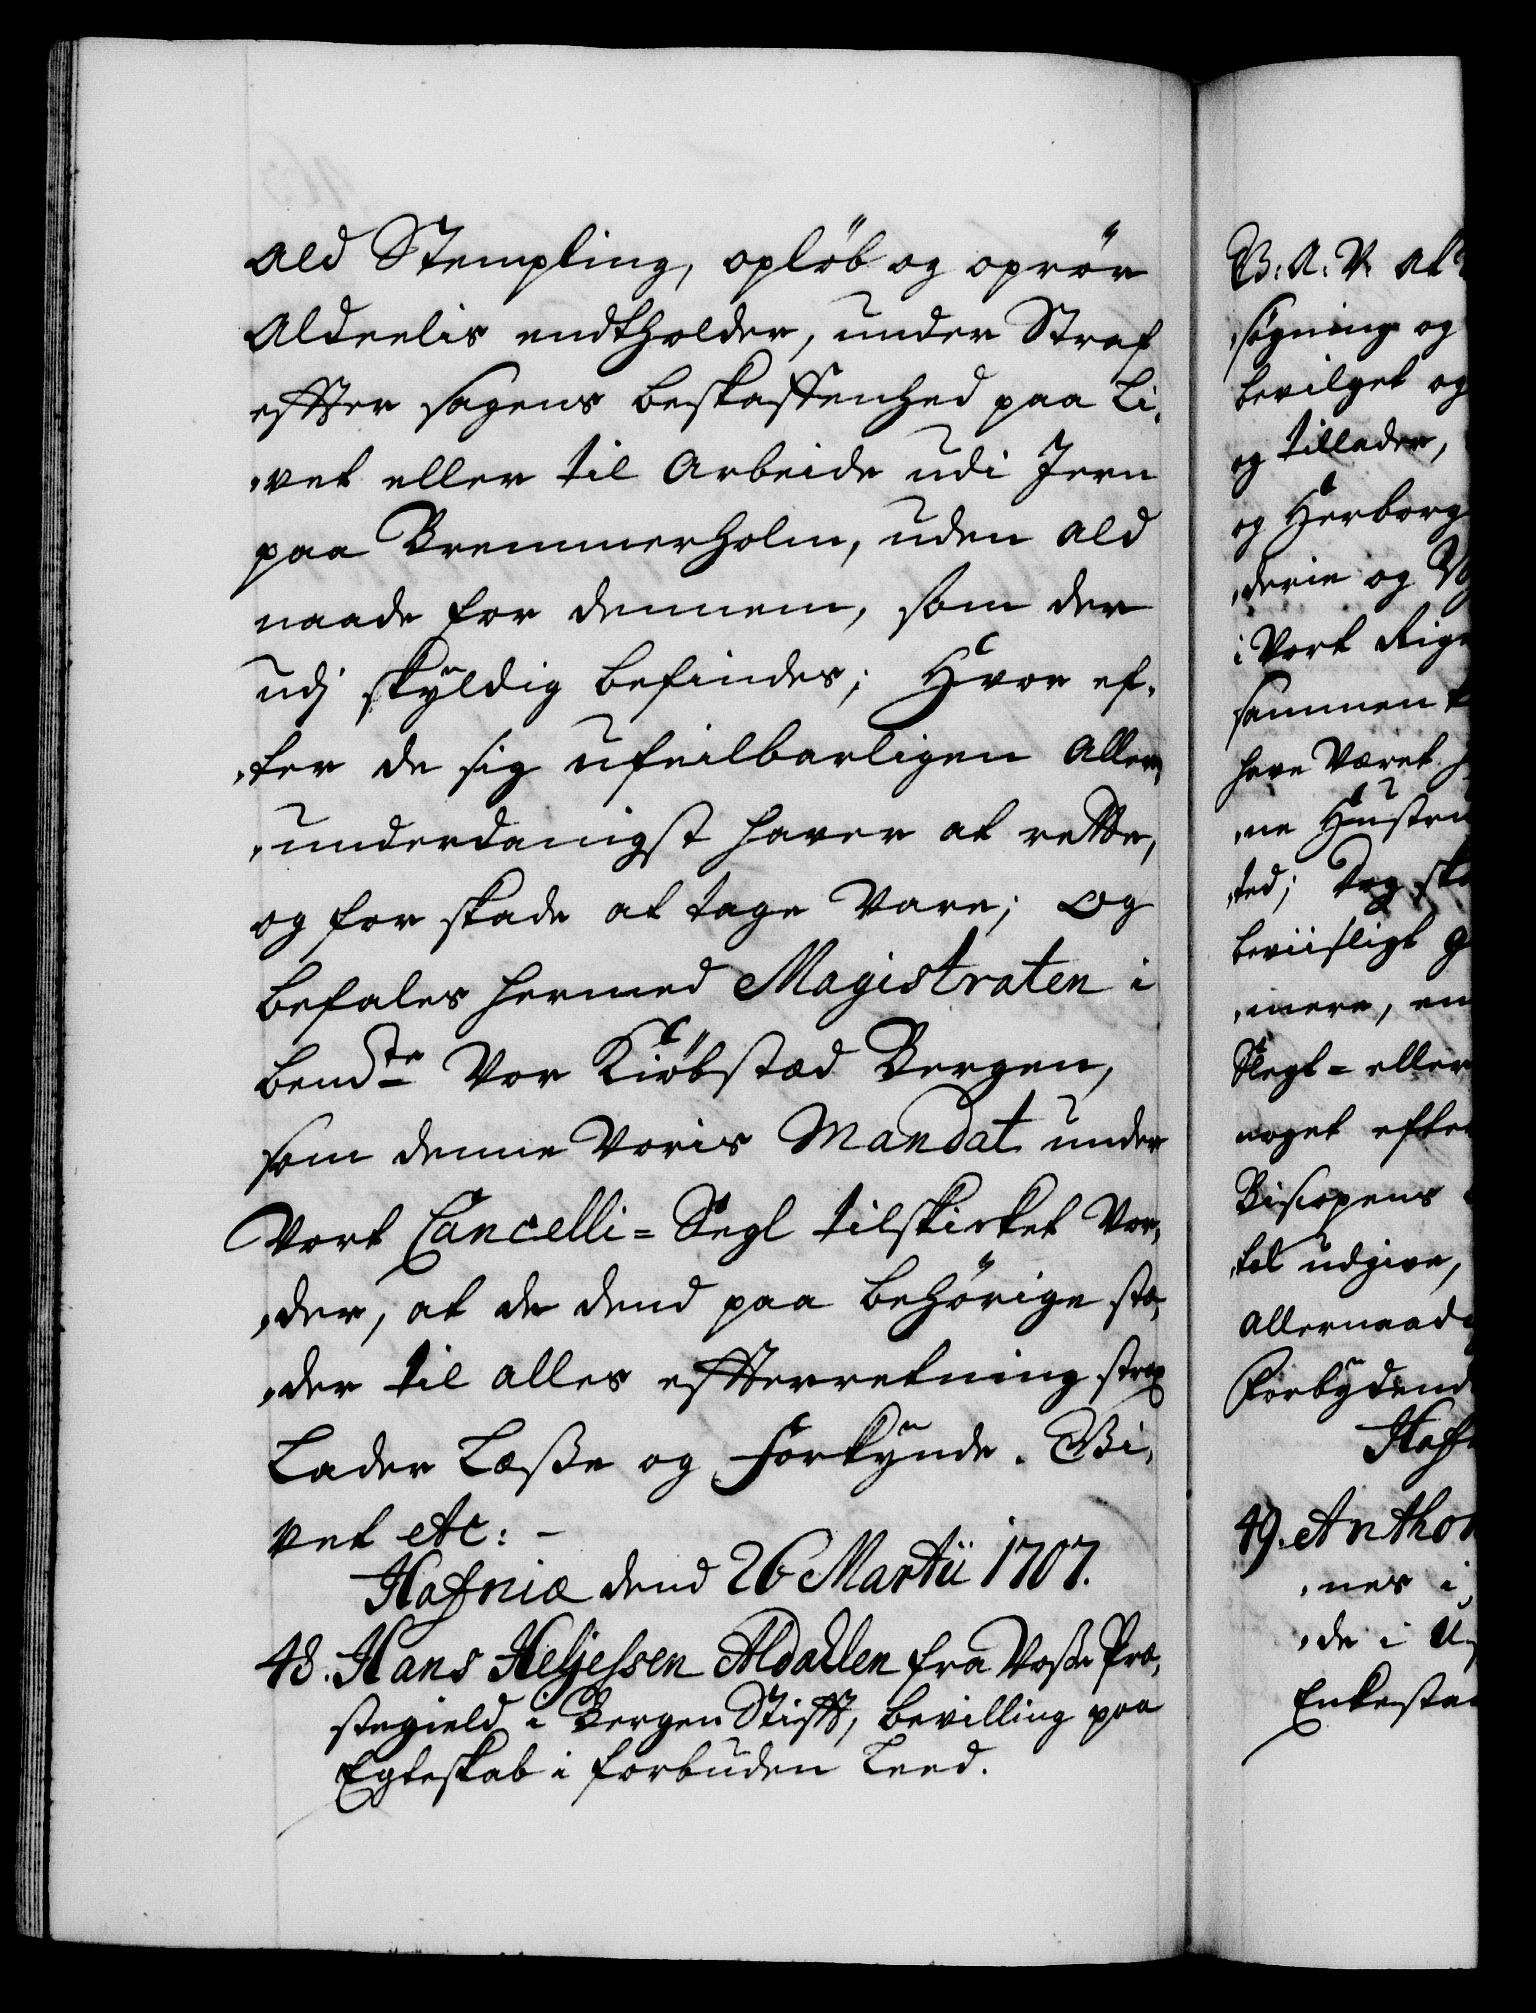 ald Stempling, opløb og oprør
Aldeelis endtholder, under Straf
effter sagens beskaffenhed paa Li,
,vet eller til Arbeide udi Jern
paa Bremmerholm, uden ald
naade for dennem, som der
udj skÿldig befindes; Hvor ef,
,ter de sig ufeilbarligen Aller,
,underdanigst haver at rette,
og for skade at tage Vare; Og
befales hermed Magistraten i
bemdte Vor Kiøbstæd Bergen,
som denne Voris Mandat under
Vort Cancelli=Segl tilskicket Vor,
,der, at de dend paa behørige stæ,
,der til alles effterretning strax
Lader Læsse og Forkÿnde. Gi,
vet etc: -
Hafniæ dend 26 Martii 1707.
48. Hans Heljessen Aldallen fra Vosse Præ,
stegield i Bergen Stifft, bevilling paa
Egteskab i forbuden Leed.
V: A: V: At
,søgning og
bevilget og
og tillader,
og Herborg
,derie og
i Vort Rige
sammen
have Været
,ne Hustru
,ted; Dog
beviisligt
,mere, en
Slegt= eller
noget efter
Biscopens
,tal udgive,
Allernaad
Forbÿdend
Hafn
49. Anthon
,nes i
,de i
Enkesta